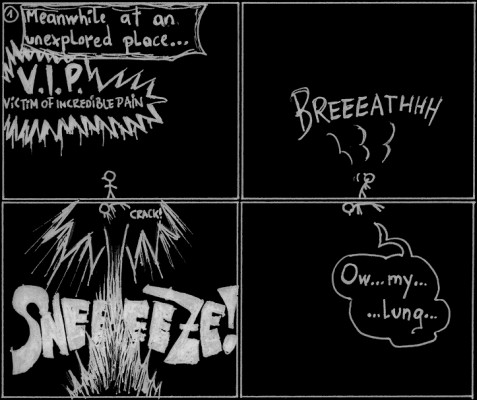 1
Meanwhile at an
unexplored place...
V.I.P.
VICTIM OF INCREDIBLE PAIN
BREEEATHHH
CRACK!
SNEEEEZE!
Ow...my...
...Lung...